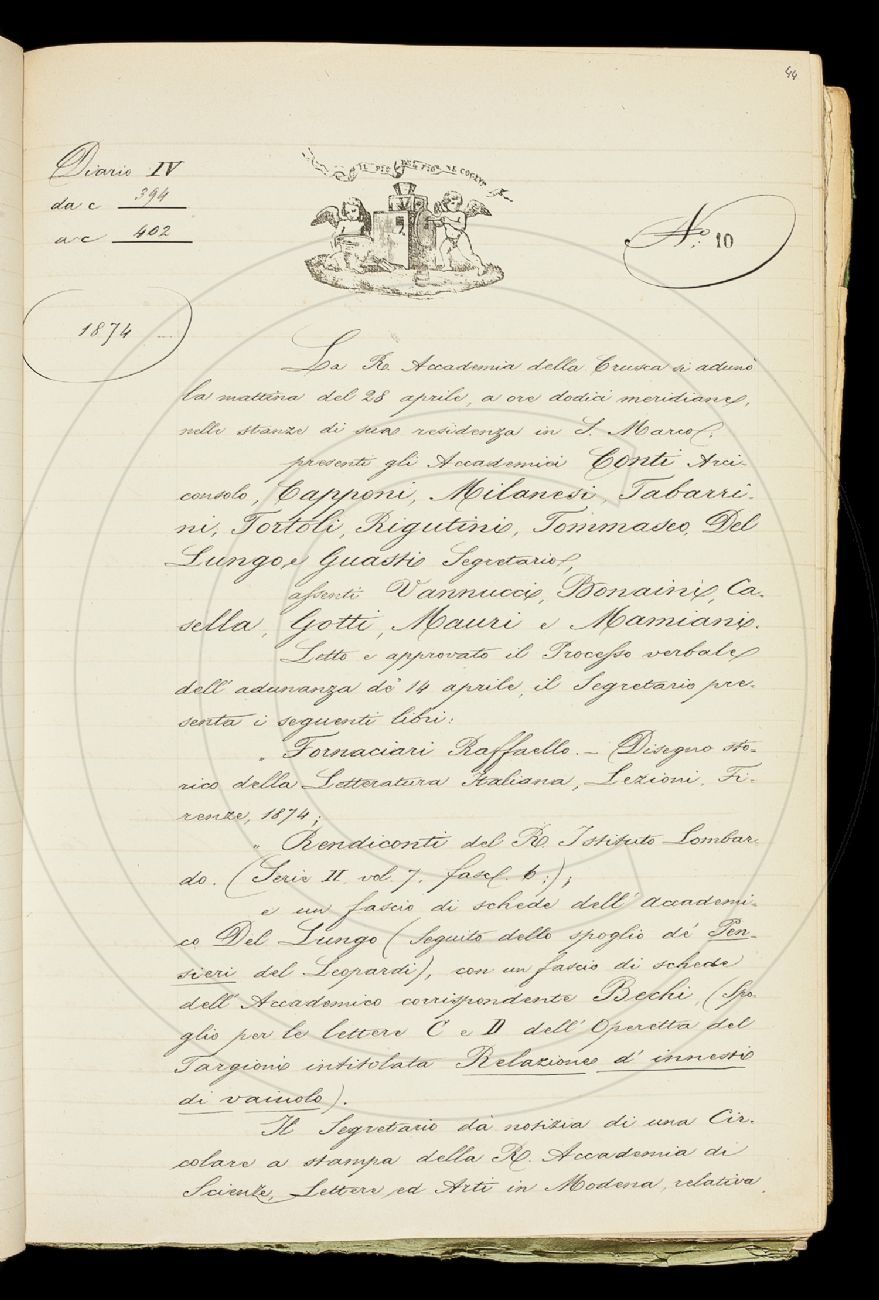 44
Diario IV
da c 394
a c 402
IL PIÙ BEL FIOR NE COGLIE
No: 10
1874
La R. Accademia della Crusca si adunò
la mattina del 28 aprile, a ore dodici meridiane,
nelle stanze di sua residenza in S. Marco;
presenti gli Accademici Conti Arci-
consolo, Capponi, Milanesi, Tabarri-
ni, Tortoli, Rigutini, Tommaseo, Del
Lungo, e Guasti Segretario;
assenti Vannucci, Bonaini, Ca-
sella, Gotti, Mauri e Mamiani.
Letto e approvato il Processo verbale
dell' adunanza de' 14 aprile, il Segretario pre-
senta i seguenti libri:
" Fornaciari Raffaello. – Disegno sto-
rico della Letteratura Italiana, Lezioni. Fi-
renze, 1874;
" Rendiconti del R. Istituto Lombar-
do. (Serie II. vol. 7. fasc. 6:);
e un fascio di schede dell' accademi-
co Del Lungo (seguito dello spoglio de' Pen-
sieri del Leopardi), con un fascio di schede
dell' Accademico corrispondente Bechi, (Spo-
glio per le lettere C e D dell' Operetta del
Targioni intitolata Relazione d' innesti
di vaiuolo).
Il Segretario dà notizia di una Cir-
colare a stampa della R. Accademia di
Scienze, Lettere, ed Arti in Modena, relativa